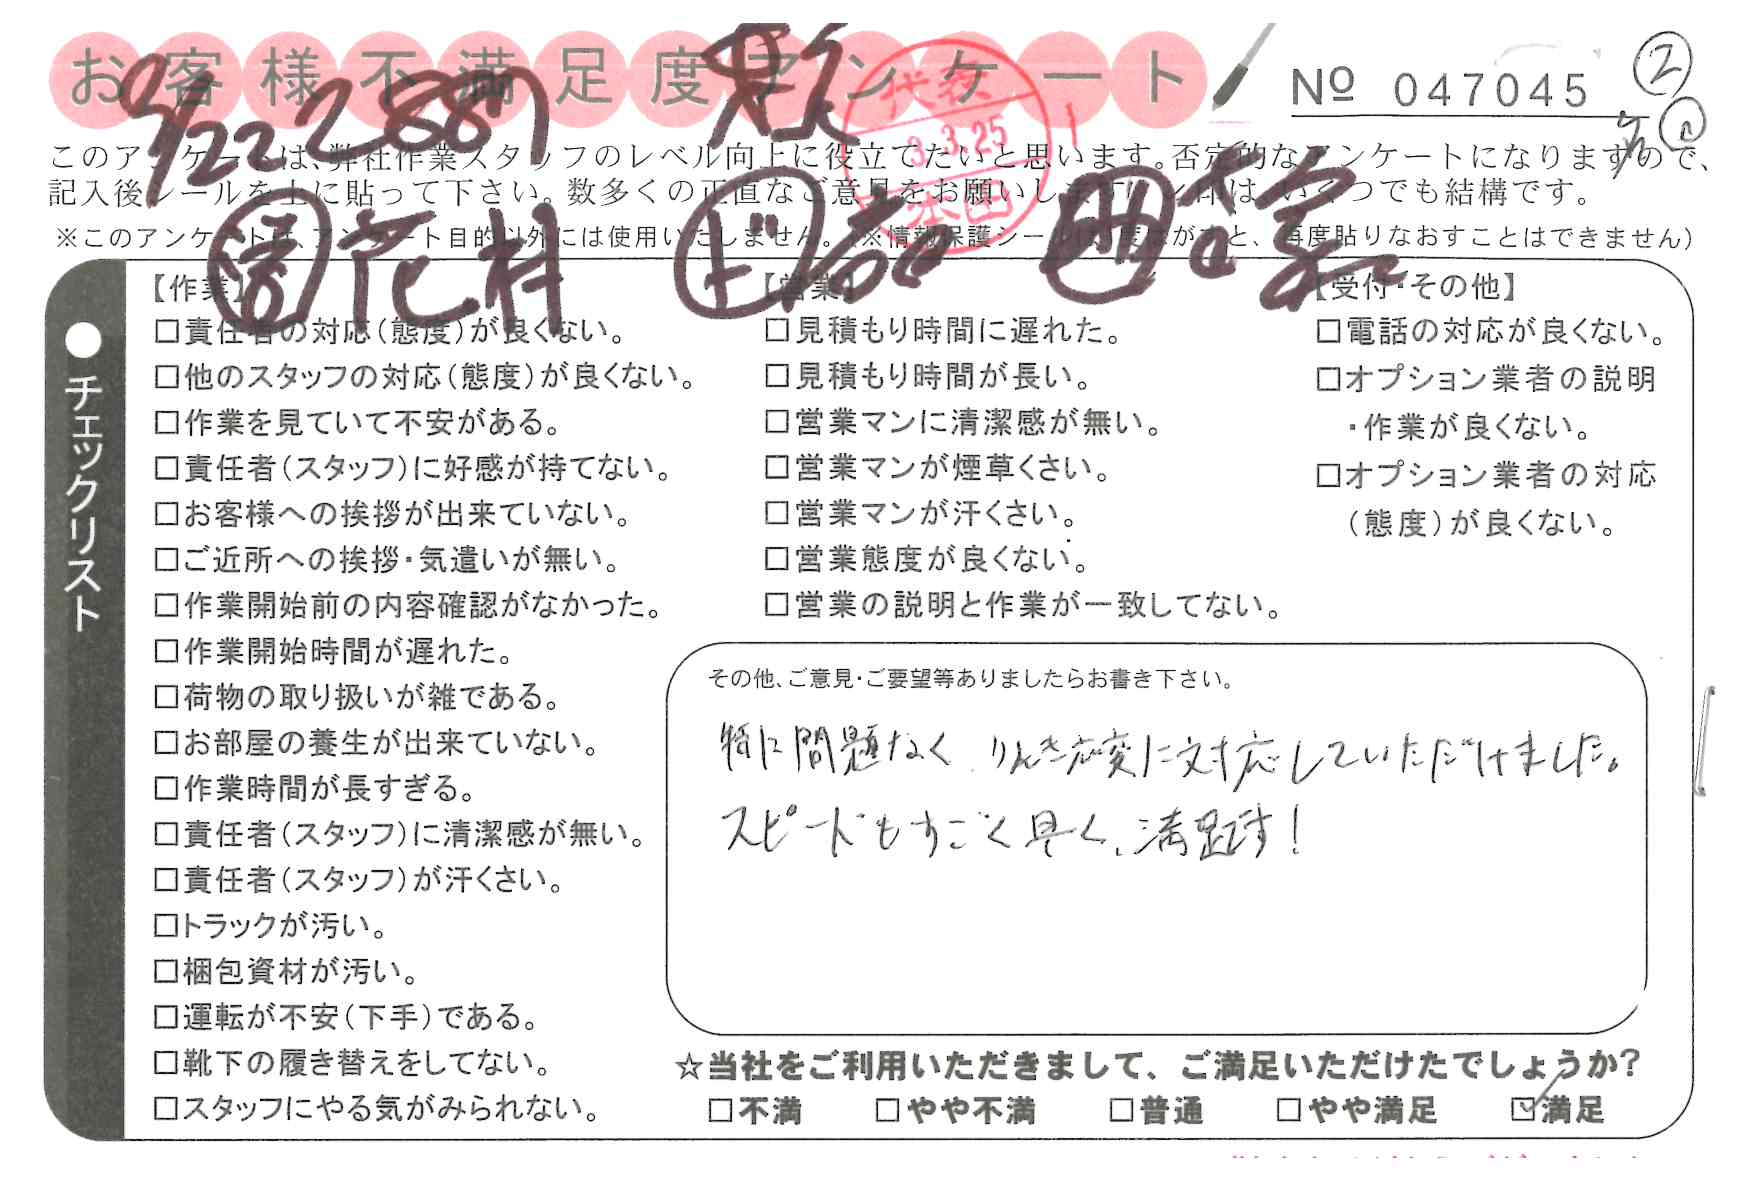 お客様不満足度アンケート
№ 047045
②
このアンケートは、弊社作業スタッフのレベル向上に役立てたいと思います。否定的なアンケートになりますので、
記入後シールを上に貼って下さい。数多くの正直なご意見をお願いします!
いくつでも結構です。
※このアンケートは、アンケート目的以外には使用いたしません。(※情報保護シールは1度はがすと、再度貼りなおすことはできません)
代表
3.3.25
本田
●チェックリスト
【作業】
□責任者の対応(態度)が良くない。
□他のスタッフの対応(態度)が良くない。
□作業を見ていて不安がある。
□責任者(スタッフ)に好感が持てない。
□お客様への挨拶が出来ていない。
□ご近所への挨拶・気遣いが無い。
□作業開始前の内容確認がなかった。
□作業開始時間が遅れた。
□荷物の取り扱いが雑である。
□お部屋の養生が出来ていない。
□作業時間が長すぎる。
□責任者(スタッフ)に清潔感が無い。
□責任者(スタッフ)が汗くさい。
□トラックが汚い。
□梱包資材が汚い。
□運転が不安(下手)である。
□靴下の履き替えをしてない。
□スタッフにやる気がみられない。
【営業】
□見積もり時間に遅れた。
□見積もり時間が長い。
□営業マンに清潔感が無い。
□営業マンが煙草くさい。
□営業マンが汗くさい。
□営業態度が良くない。
□営業の説明と作業が一致してない。
【受付・その他】
□電話の対応が良くない。
□オプション業者の説明
・作業が良くない。
□オプション業者の対応
(態度)が良くない。
その他、ご意見・ご要望等ありましたらお書き下さい。
特に問題なく、りんき応変に対応していただけました。
スピードもすごく早く、満足です!
☆当社をご利用いただきまして、ご満足いただけたでしょうか?
□不満 □やや不満 □普通 □やや満足 ☑満足